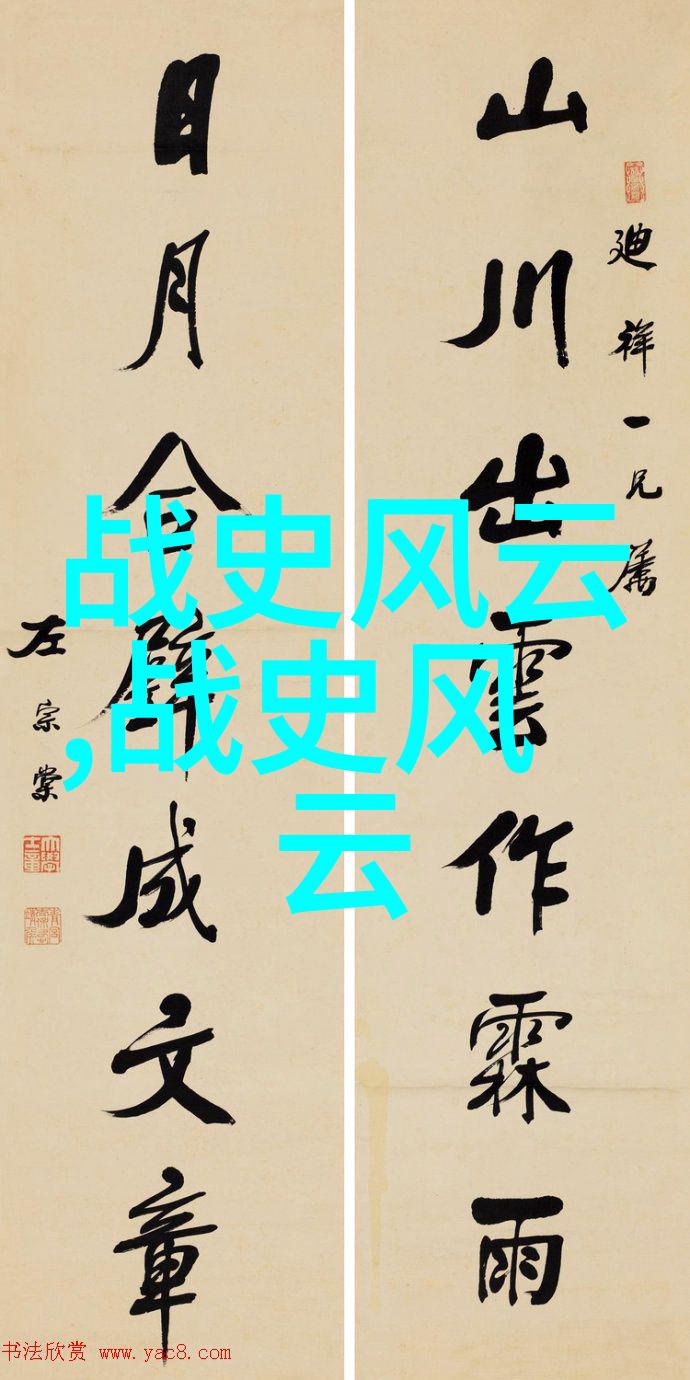 山川出雲作霖雨
廸祥一兄屬
日月合璧成文章
左宗棠
战史风云
,战史风
云
书法欣赏 www.yac8.com